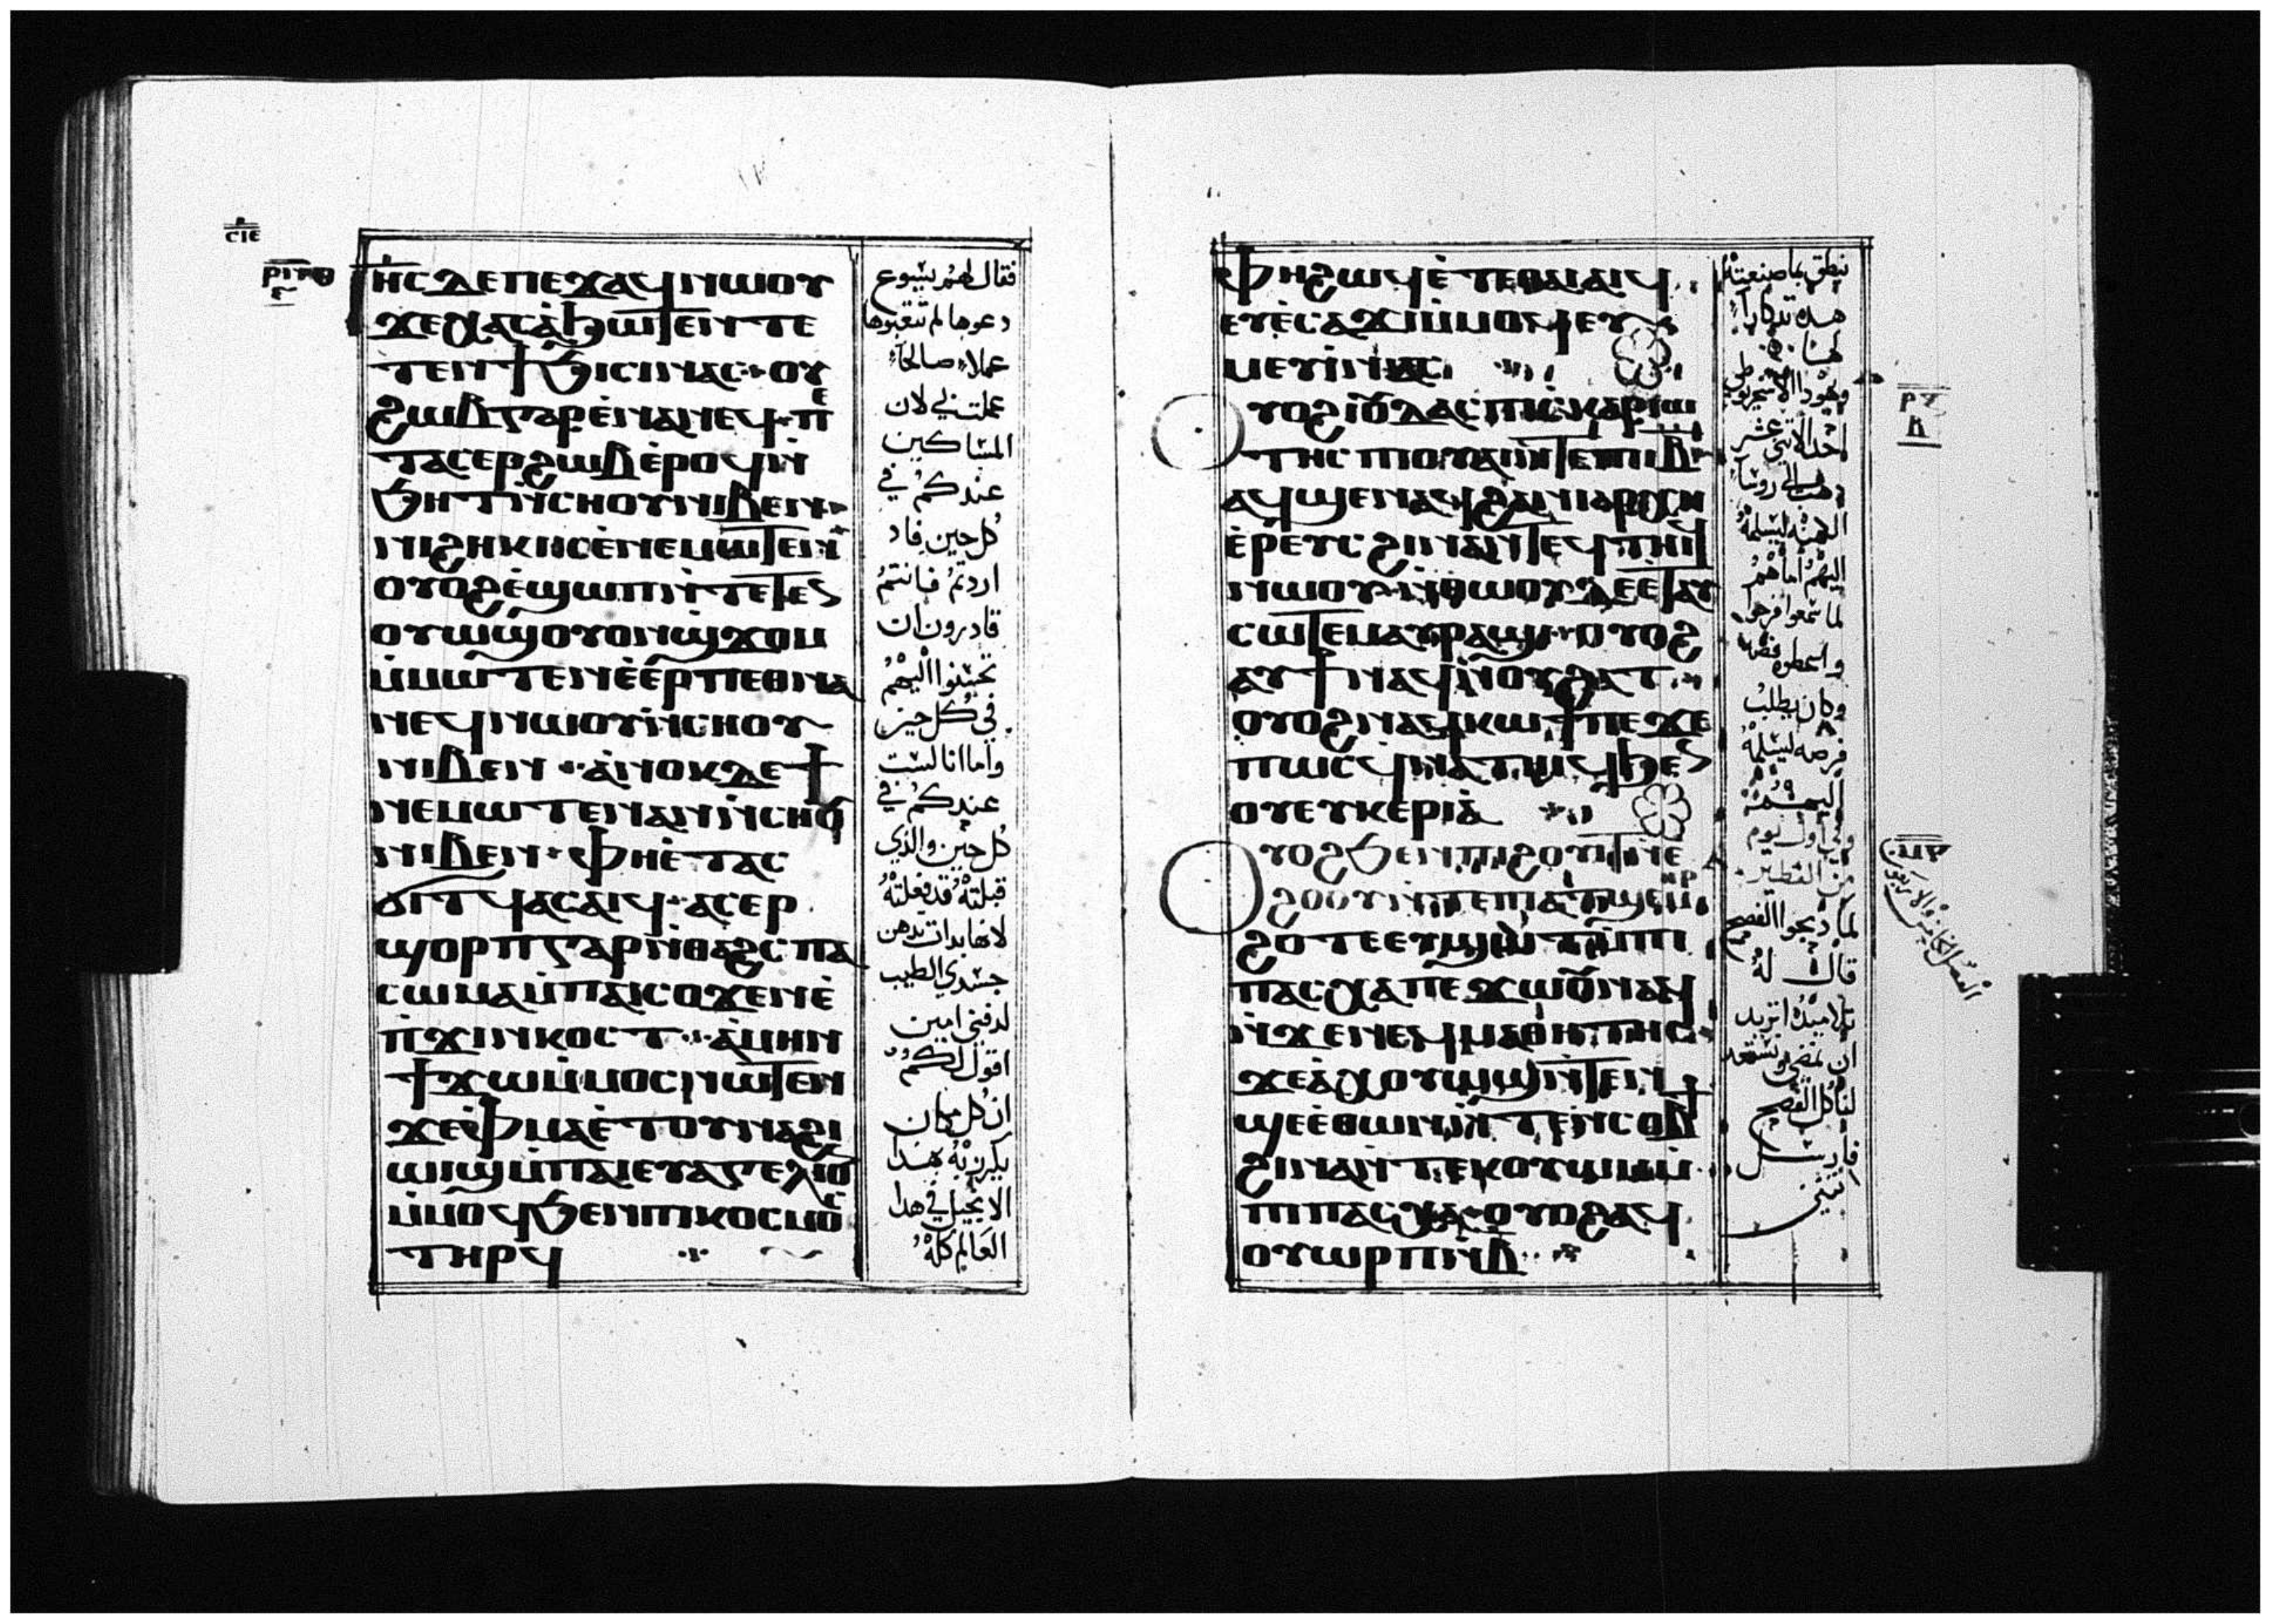 ⲥⲓⲉ
ⲓⲏⲥ ⲇⲉ ⲡⲉϫⲁϥ ⲛⲱⲟⲩ
ϫⲉ ⲭⲁⲥ ⲁϧⲱⲧⲉⲛ ⲧⲉ
ⲧⲉⲛϯϧⲓⲥⲓ ⲛⲁⲥ ⲟⲩ
ϩⲱⲃ ⲅⲁⲣ ⲉⲛⲁⲛⲉϥ ⲡⲉ
ⲧⲁⲥⲉⲣϩⲱⲃ ⲉⲣⲟϥ ⲛ
ϧⲏⲧ ⲛⲥⲏⲟⲩ ⲛⲓⲃⲉⲛ
ⲛⲓϩⲏⲕⲓ ⲥⲉⲛⲉⲙⲱⲧⲉⲛ
ⲟⲩⲟϩ ⲉϣⲱⲡ ⲛⲧⲉⲧⲉⲛ
ⲟⲩⲱϣ ⲟⲩⲟⲛϣϫⲟⲙ
ⲙⲙⲱⲧⲉⲛ ⲉⲉⲣⲡⲉⲑⲛⲁ
ⲛⲉϥ ⲛⲱⲟⲩ ⲛⲥⲏⲟⲩ
ⲛⲓⲃⲉⲛ ⲁⲛⲟⲕ ⲇⲉ ϯ
ⲛⲉⲙⲱⲧⲉⲛ ⲁⲛ ⲛⲥⲏⲟⲩ
ⲛⲓⲃⲉⲛ ⲫⲏ ⲉⲧⲁⲥ
ϭⲓⲧϥ ⲁⲥⲁⲓϥ ⲁⲥⲉⲣ
ϣⲟⲣⲡ ⲅⲁⲣ ⲛⲑⲁϩⲥ ⲡⲁ
ⲥⲱⲙⲁ ⲙⲡⲁⲓⲥⲟϫⲉⲛ ⲉ
ⲡϫⲓⲛⲕⲟⲥⲧ ⲁⲙⲏⲛ
ϯϫⲱ ⲙⲙⲟⲥ ⲛⲱⲧⲉⲛ
ϫⲉ ⲫⲙⲁ ⲉⲧⲟⲩⲛⲁϩⲓ
ⲱⲓϣ ⲙⲡⲁⲓⲉⲩⲁⲅⲅⲉⲗⲓⲟⲛ
ⲙⲙⲟϥ ϧⲉⲛ ⲡⲓⲕⲟⲥⲙⲟⲥ
ⲧⲏⲣϥ
فقال لهم يسوع
دعوها لم تتعبوها
عملاً صالحاً
عملت بي لان
المساكين
عندكم في
كل حين فاد
اردتم فانتم
قادرون ان
تحسنوا اليهم
في كل حين
واما انا لست
عندكم في
كل حين والذي
قبلته قد فعلته
لانها بدات تدهن
جسدي الطيب
لدفني امين
اقول لكم
ان كل مكان
يكرز به بهدا
الانجيل في هدا
العالم كله
ⲫⲏ ϩⲱϥ ⲉⲧⲉ ⲑⲁⲓ ⲁⲓϥ
ⲉⲩⲉⲥⲁϫⲓ ⲙⲙⲟϥ ⲉⲩ
ⲙⲉⲩⲓ ⲛⲁⲥ
ⲟⲩⲟϩ ⲓⲟⲩⲇⲁⲥ ⲡⲓⲥⲕⲁⲣⲓⲱ
ⲧⲏⲥ ⲡⲓⲟⲩⲁⲓ ⲛⲧⲉ ⲡⲓⲓⲃ
ⲁϥϣⲉ ⲛⲁϥ ϩⲁ ⲛⲓⲁⲣⲭⲏ
ⲉⲣⲉⲩⲥ ϩⲓⲛⲁ ⲛⲧⲉϥⲧⲏⲓϥ
ⲛⲱⲟⲩ ⲛⲑⲱⲟⲩ ⲇⲉ ⲉⲧⲁⲩ
ⲥⲱⲧⲉⲙ ⲁⲩⲣⲁϣⲓ ⲟⲩⲟϩ
ⲁⲩϯ ⲛⲁϥ ⲛⲟⲩϩⲁⲧ
ⲟⲩⲟϩ ⲛⲁϥⲕⲱϯ ⲡⲉ ϫⲉ
ⲡⲱⲥ ϥⲛⲁⲧⲏⲓϥ ϧⲉⲛ
ⲟⲩⲉⲩⲕⲉⲣⲓⲁ
ⲟⲩⲟϩ ϧⲉⲛ ⲡⲓϩⲟⲩⲓⲧ ⲛⲉ
ϩⲟⲟⲩ ⲛⲧⲉ ⲡⲓⲁⲧϣⲉⲙⲏⲣ
ϩⲟⲧⲉ ⲉⲩϣⲱⲧ ⲙⲡⲓ
ⲡⲁⲥⲭⲁ ⲡⲉϫⲱⲟⲩ ⲛⲁϥ
ⲛϫⲉ ⲛⲉϥⲙⲁⲑⲏⲧⲏⲥ
ϫⲉ ⲁⲭⲟⲩⲱϣ ⲛⲧⲉⲛ
ϣⲉ ⲉⲑⲱⲛ ⲛⲧⲉⲛⲥⲟⲃϯ
ϩⲓⲛⲁ ⲛⲧⲉⲕⲟⲩⲱⲙ ⲙ
ⲡⲓⲡⲁⲥⲭⲁ ⲟⲩⲟϩ ⲁϥ
ⲟⲩⲱⲣⲡ ⲛⲃ
ينطق بما صنعته
هده تدكاراً
لها
ويهودا الاسخريوطي
احد الاثنى عشر
دهب الى روسا
الكهنة ليسلمه
اليهم اما هم
لما سمعوا فرحوا
واعطوه فضه
وكان يطلب
فرصه ليسلمه
اليهم
وفي اول يوم
من الفطير
لما دبحوا الفصح
قال له
تلاميده اتريد
ان نمضي ونستعد
لتاكل الفصح
فارسل
اثنين